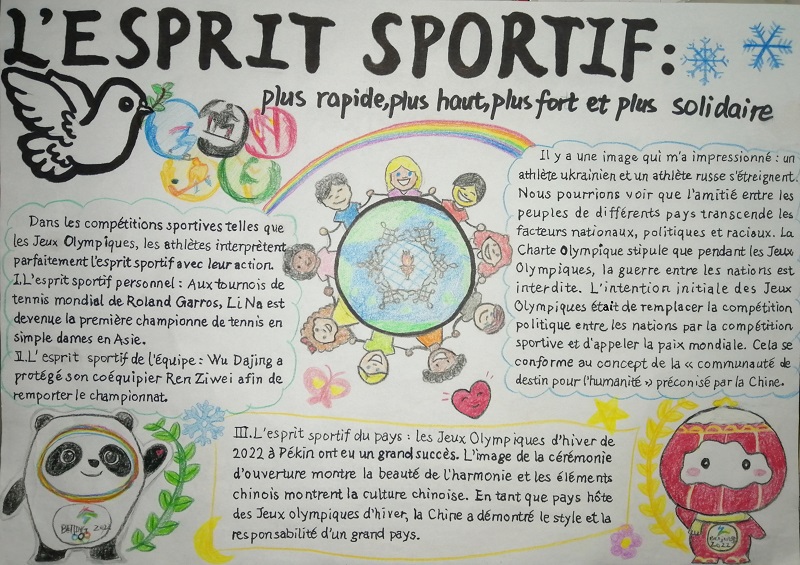 L'ESPRIT SPORTIF:
plus rapide, plus haut, plus fort et plus solidaire
Dans les compétitions sportives telles que
les Jeux Olympiques, les athlètes interprètent
parfaitement l'esprit sportif avec leur action.
I.L'esprit sportif personnel : Aux tournois de
tennis mondial de Roland Garros, Li Na est
devenue la première championne de tennis en
simple dames en Asie.
II.L'esprit sportif de l'équipe : Wu Dajing a
protégé son coéquipier Ren Ziwei afin de
remporter le championnat.
Il y a une image qui m'a impressionné : un
athlète ukrainien et un athlète russe s'étreignent.
Nous pourrions voir que l'amitié entre les
peuples de différents pays transcende les
facteurs nationaux, politiques et raciaux. La
Charte Olympique stipule que pendant les Jeux
Olympiques, la guerre entre les nations est
interdite. L'intention initiale des Jeux
Olympiques était de remplacer la compétition
politique entre les nations par la compétition
sportive et d'appeler la paix mondiale. Cela se
conforme au concept de la « communauté de
destin pour l'humanité » préconisé par la Chine.
III.L'esprit sportif du pays : les Jeux Olympiques d'hiver de
2022 à Pékin ont eu un grand succès. L'image de la cérémonie
d'ouverture montre la beauté de l'harmonie et les éléments
chinois montrent la culture chinoise. En tant que pays hôte
des Jeux olympiques d'hiver, la Chine a démontré le style et la
responsabilité d'un grand pays.
2022
2022